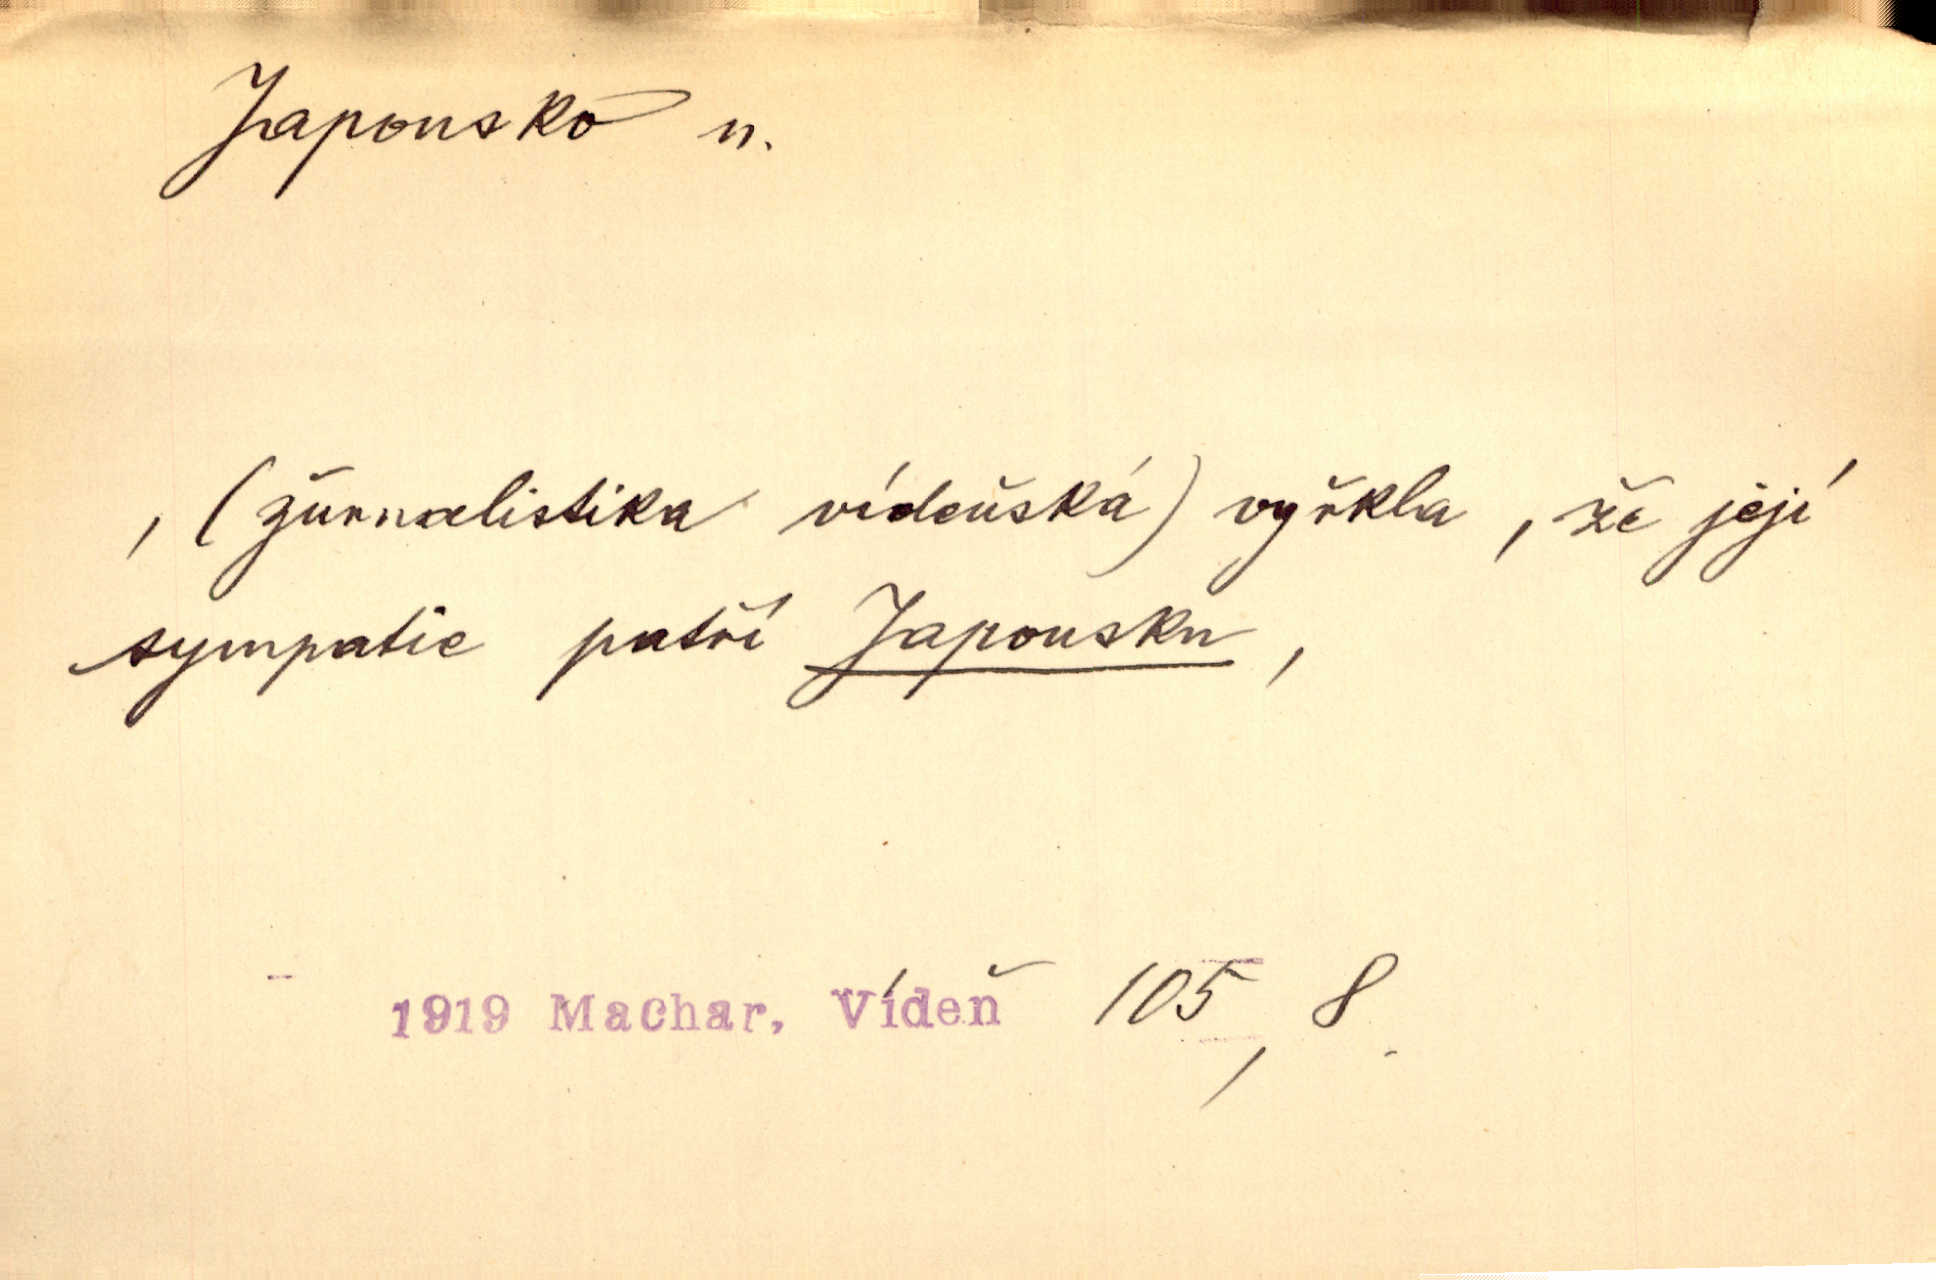 Japonsko n.
, (žurnalistika vídeňská) vyřkla, že její
sympatie patří Japonsku,
1919 Machar, Vídeň 105, 8